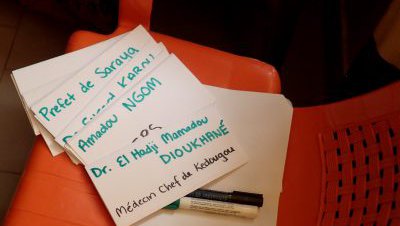 Prefet de Saraya
KARNI
Amadou NGOM
Dr. El Hadji Mamadou
DIOUKHANÉ
Médecin Chef de Kedougou